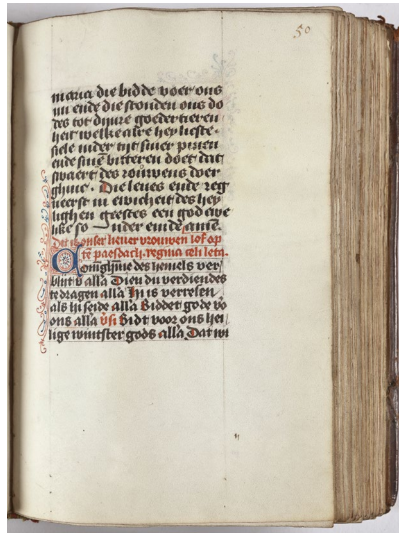 50
maria die bidde voer ons
nu ende die stonden ons do
des tot dijnre goedertieren
heit welke alre heylichste
siele inder tijt sijnre pinen
ende sinen bitteren doet dat
swaert des rouwens doer
ghinc. Die leves ende reg
neerst in ewicheit des hey
lighen geestes een god ewe
like so under einde amen.
Dat is onser liever vrouwen lof op
te paesdach. regina celi leta.
Coninghinne des hemels ver
blijt v alla Dien du verdiendes
te dragen alla Hi is verresen
als hi seide alla Biddet gode vo
ons alla Bidt voor ons hei
lige moeder gods alla Dat wi